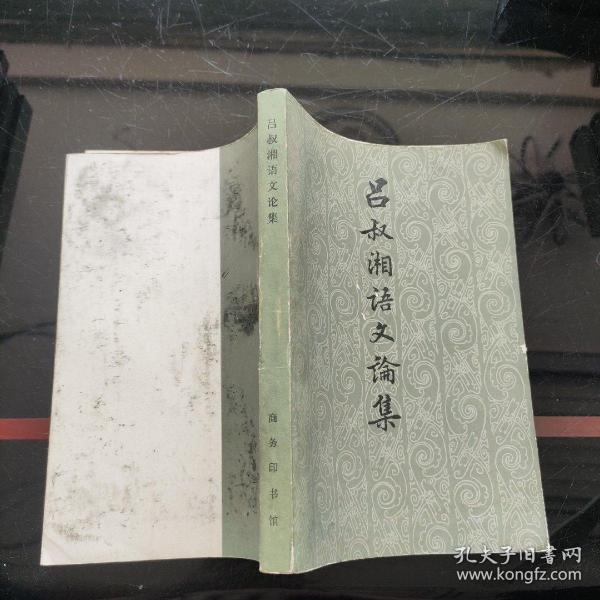 吕叔湘语文论集
商务印书馆
吕叔湘语文論集
孔夫子旧书网
www.kongfz.com